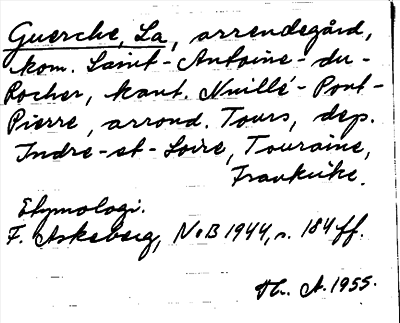 Guerche, La, arrendegård,
kom. Saint-Antoine-du-
Rocher, kant. Nuillé-Pont-
Pierre, arrond. Tours, dep.
Indre-et-Loire, Touraine,
Frankrike.
Etymologi.
F. Askeberg, NoB 1944, s. 184 ff.
Th. A. 1955.